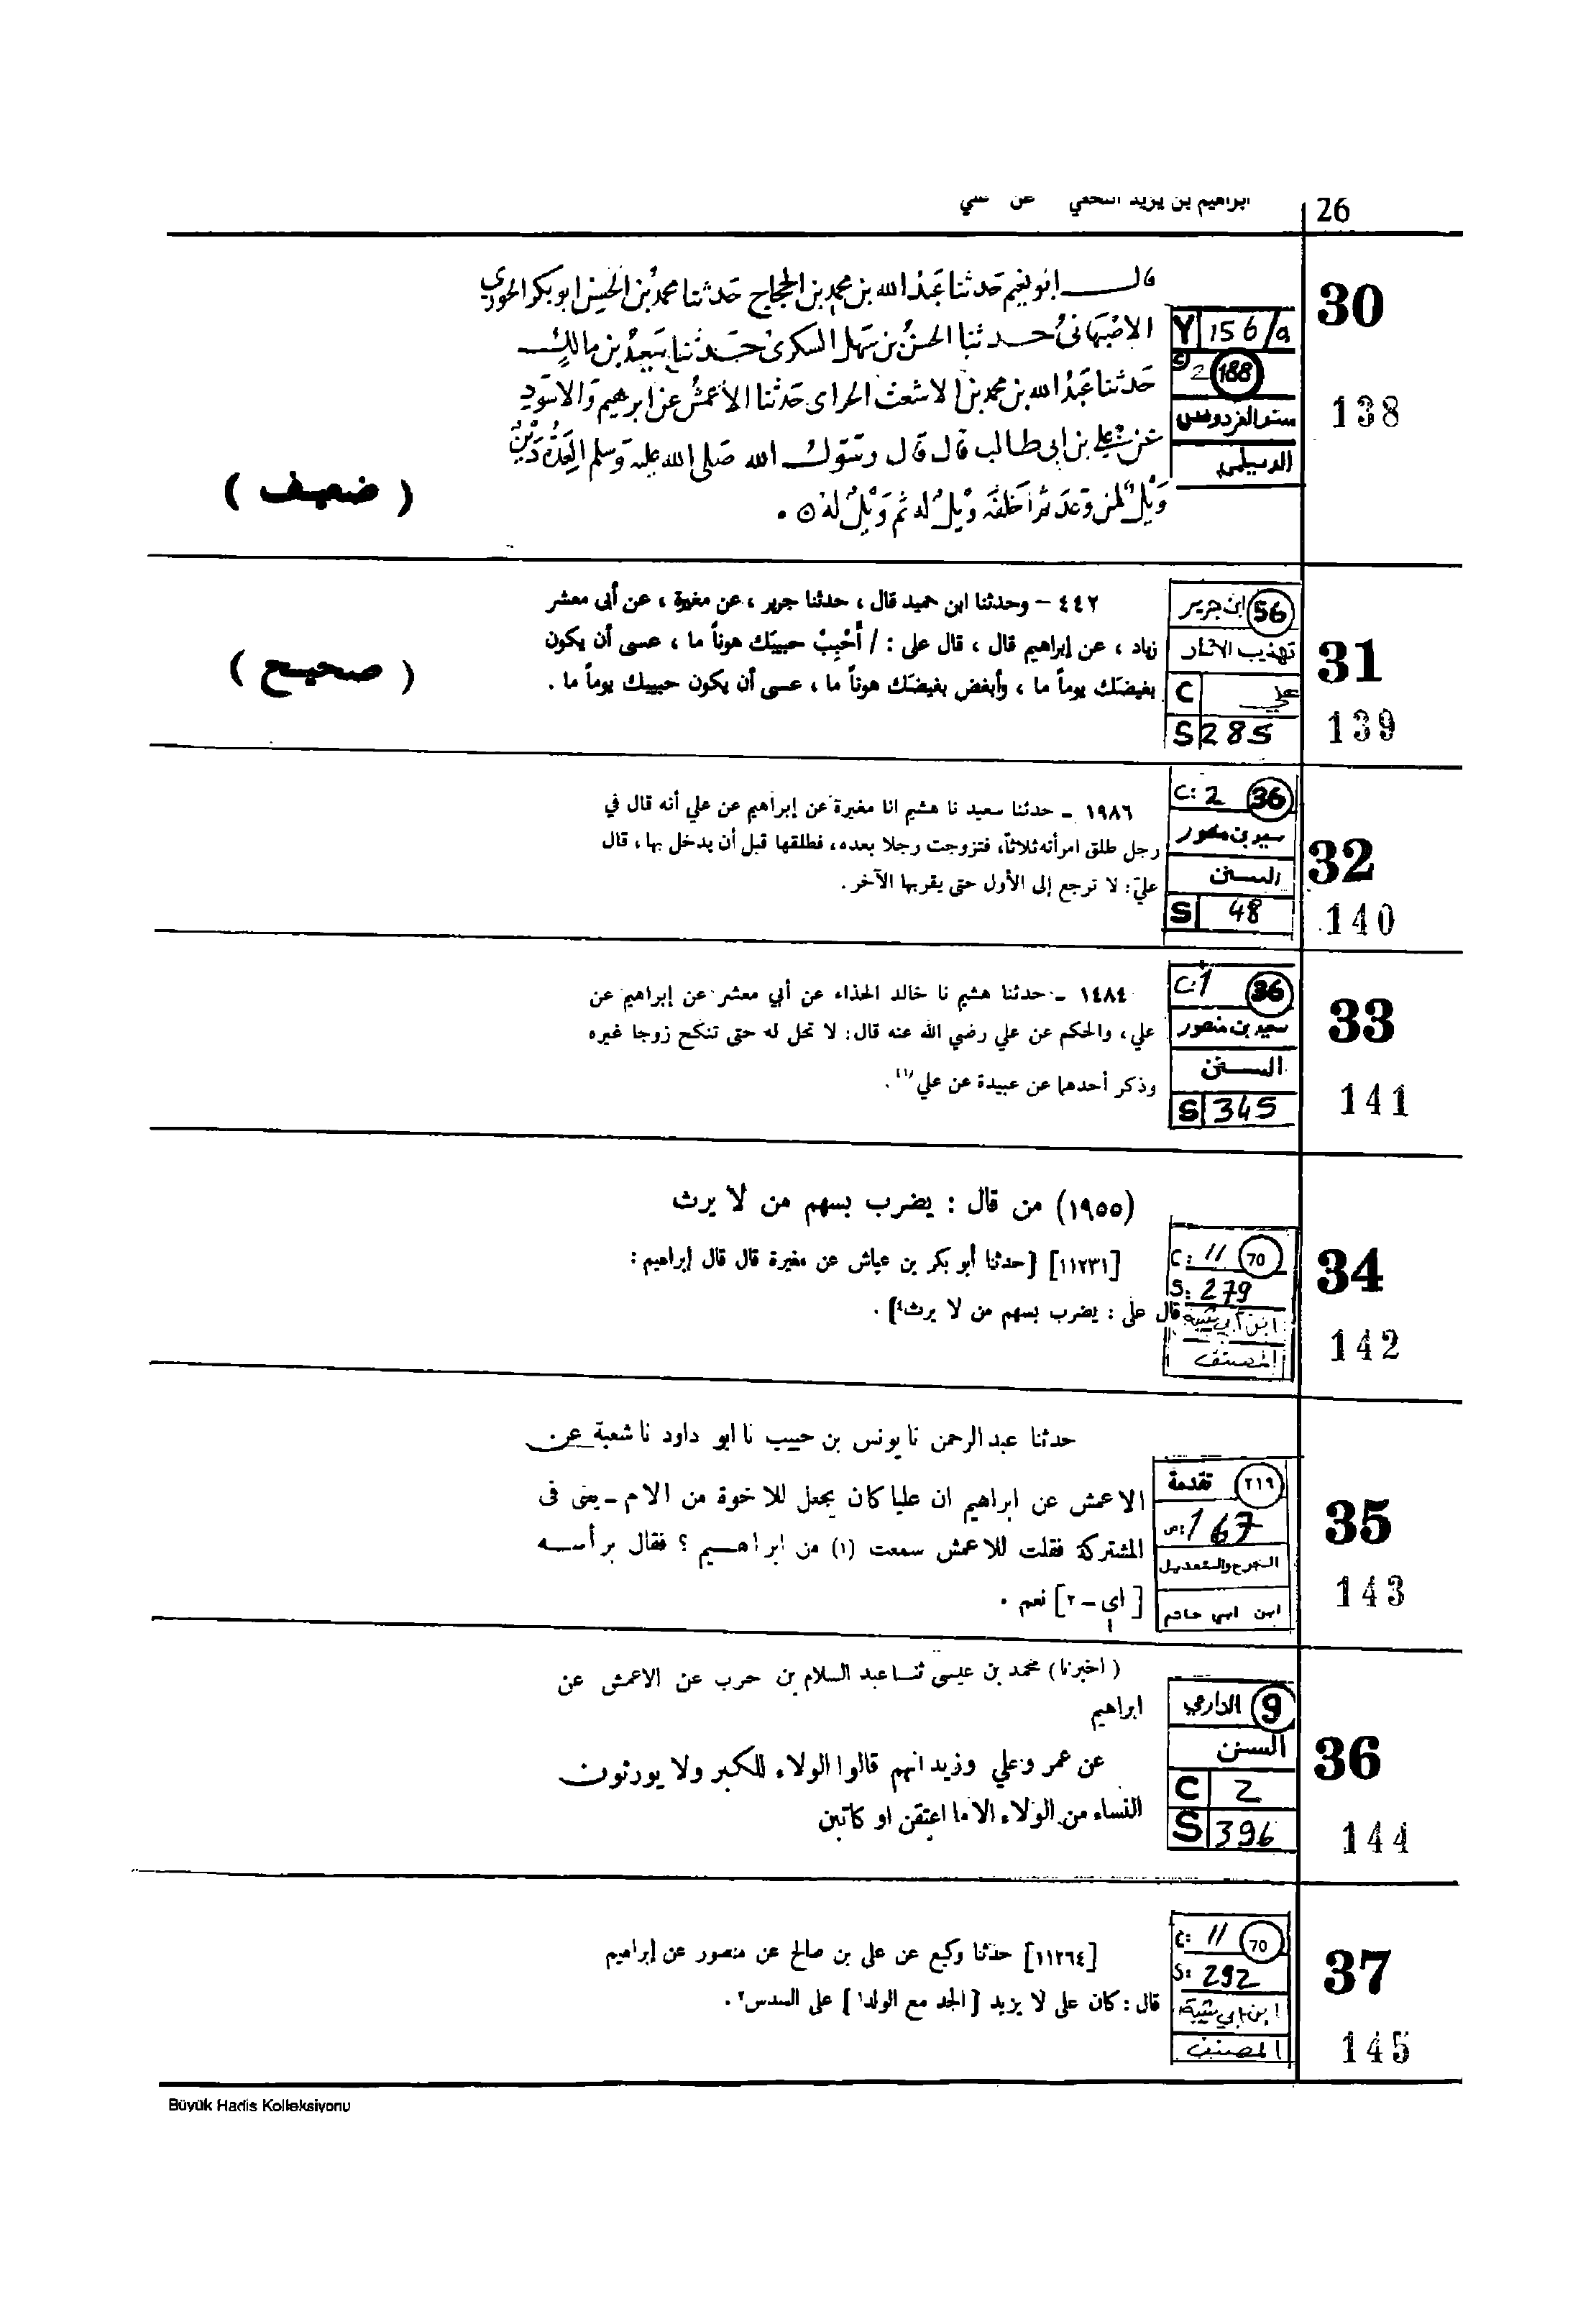 26
ابراهيم بن يزيد النخعي عن علي
30
138
Y 156/a
C 2 188
مسند الفردوس
الديلمي
قال ابو نعيم حدثنا عبد الله بن محمد بن الحجاج حدثنا محمد بن الحسن ابو بكر
الاصبهانى حدثنا الحسن بن سهل السكرى حدثنا سعيد بن مالك
حدثنا عبد الله بن محمد بن الاشعث الحرانى حدثنا الأعمش عن ابرهيم والاسود
عن علي بن ابى طالب قال قال رسول الله صلى الله عليه وسلم العدة دين
ويل لمن وعد ثم أخلف ويل له ثم ويل له .
( ضعيف )
31
139
ابن جرير 56
تهذيب الاثار
C علي
S 285
٤٤٢ - وحدثنا ابن حميد قال ، حدثنا جرير ، عن مغيرة ، عن أبى معشر
زياد ، عن إبراهيم قال ، قال على : / أَحْبِبْ حبيبَك هوناً ما ، عسى أن يكون
بغيضَك يوماً ما ، وأبغض بغيضَك هوناً ما ، عسى أن يكون حبيبك يوماً ما .
( صحيح )
32
140
C: 2 36
سعيد بن منصور
السنن
S 48
١٩٨٦ - حدثنا سعيد نا هشيم انا مغيرة عن إبراهيم عن علي أنه قال في
رجل طلق امرأته ثلاثاً، فتزوجت رجلا بعده، فطلقها قبل أن يدخل بها، قال
عليّ: لا ترجع إلى الأول حتى يقربها الآخر.
33
141
C: 1 36
سعيد بن منصور
السنن
S 345
١٤٨٤ - حدثنا هشيم نا خالد الحذاء عن أبي معشر عن إبراهيم عن
علي، والحكم عن علي رضي الله عنه قال: لا تحل له حتى تنكح زوجا غيره
وذكر أحدهما عن عبيدة عن علي(١).
34
142
C: 11 70
S: 279
ابن أبي شيبة
المصنف
(١٩٥٥) من قال : يضرب بسهم من لا يرث
[١١٢٣١] [حدثنا أبو بكر بن عياش عن مغيرة قال قال إبراهيم :
قال على : يضرب بسهم من لا يرث٤] .
35
143
٢١٩ تقدمة
ص: 167
الجرح والتعديل
ابن ابي حاتم
حدثنا عبد الرحمن نا يونس بن حبيب نا ابو داود نا شعبة عن
الاعمش عن ابراهيم ان عليا كان يجعل للاخوة من الام - يعنى فى
المشتركة فقلت للاعمش سمعت (١) من ابراهيم ؟ فقال برأسه
[ اى - ٢ ] نعم .
36
144
9 الدارمي
السنن
C 2
S 396
( اخبرنا ) محمد بن عيسى ثنا عبد السلام بن حرب عن الاعمش عن
ابراهيم
عن عمر وعلي وزيد انهم قالوا الولاء للكبر ولا يورثون
النساء من الولاء الا ما اعتقن او كاتبن
37
145
C: 11 70
S: 292
ابن ابي شيبة
المصنف
[١١٢٦٤] حدثنا وكيع عن على بن صالح عن منصور عن إبراهيم
قال : كان على لا يزيد [ الجد مع الولد١ ] على السدس٢ .
Büyük Hadis Kolleksiyonu